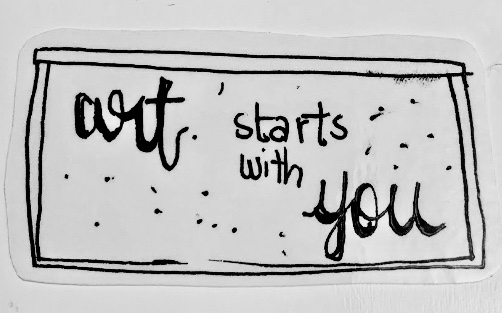 art starts
with
you